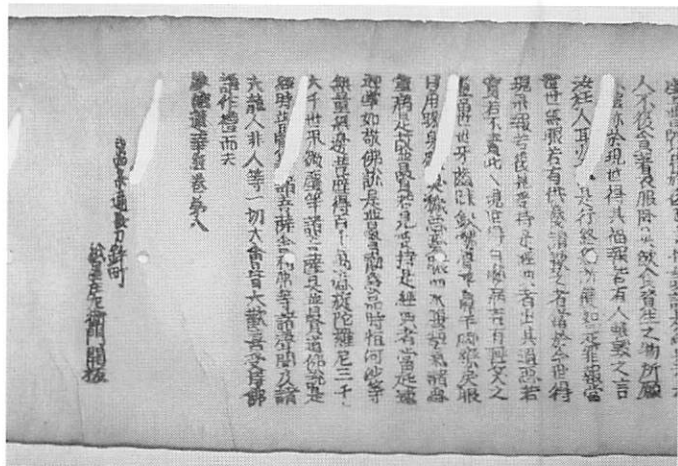 人不復貪著衣服臥具飲食資生之物所願
不虛亦於現世得其福報若有人輕毀之言
汝狂人耳空作是行終無所獲如是罪報當
世世無眼若有供養讚歎之者當於今世得
現果報若復見受持是經典者出其過惡若
實若不實此人現世得白癩病若有輕笑之
者當世世牙齒踈缺醜脣平鼻手脚繚戾眼
目角睞身體臭穢惡瘡膿血水腹短氣諸惡
重病是故普賢若見受持是經典者當起遠
迎當如敬佛說是普賢勸發品時恒河沙等
無量無邊菩薩得百千萬億旋陀羅尼三千
大千世界微塵等諸菩薩具普賢道佛說是
經時普賢等諸菩薩舍利弗等諸聲聞及諸
天龍人非人等一切大會皆大歡喜受持佛
語作禮而去
妙法蓮華經卷第八
通
町
左衛門開板